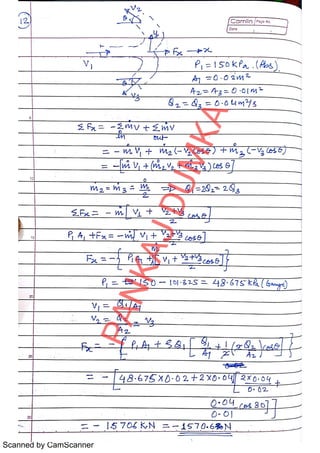 12
Camlin Page No.
Date
V2
θ
y
Fx → x
V1
θ
V3
P1 = 150 kPa (Abs)
A1 = 0.02 m²
A2 = A3 = 0.01 m²
Q2 = Q3 = 0.04 m³/s
Σ Fx = - Σ ṁv + Σ ṁv
in out
= - ṁ V1 + ṁ2 (-V2 cos θ) + ṁ3 (-V3 cos θ)
= - [ṁ V1 + (ṁ2 V2 + ṁ3 V3) cos θ]
ṁ2 = ṁ3 = ṁ/2 ⇒ Q1 = 2Q2 = 2Q3
Σ Fx = - ṁ [V1 + (V2+V3)/2 cos θ]
P1 A1 + Fx = - ṁ [V1 + (V2+V3)/2 cos θ]
Fx = - { P1 A1 + ṁ [V1 + (V2+V3)/2 cos θ] }
P1 = 150 - 101.325 = 48.675 kPa (Gauge)
V1 = Q1/A1
V2 = Q2/A2 = V3
Fx = - { P1 A1 + S Q1 [ Q1/A1 + 1/2 (2 Q2/A2) cos θ ] }
= - [ 48.675 × 0.02 + 2 × 0.04 [ 2×0.04/0.02 +
0.04/0.01 cos 30 ] ]
= - 1.5706 kN = -1570.6 N
PANKAJ DUMKA
Scanned by CamScanner